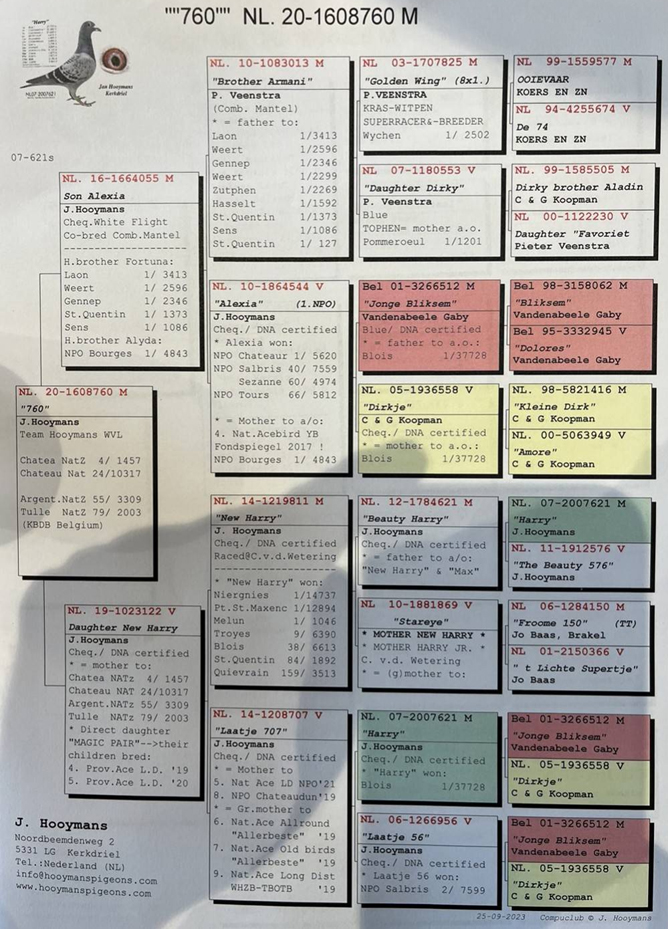 ""760"" NL. 20-1608760 M
"Harry"
NL07-2007621
Jan Hooymans
Kerkdriel
07-621s
NL. 20-1608760 M
"760"
J.Hooymans
Team Hooymans WVL
Chatea NatZ 4/ 1457
Chateau Nat 24/10317
Argent.NatZ 55/ 3309
Tulle NatZ 79/ 2003
(KBDB Belgium)
NL. 16-1664055 M
Son Alexia
J.Hooymans
Cheq.White Flight
Co-bred Comb.Mantel
--------------------
H.brother Fortuna:
Laon 1/ 3413
Weert 1/ 2596
Gennep 1/ 2346
St.Quentin 1/ 1373
Sens 1/ 1086
H.brother Alyda:
NPO Bourges 1/ 4843
NL. 19-1023122 V
Daughter New Harry
J.Hooymans
Cheq./ DNA certified
* = mother to:
Chatea NATz 4/ 1457
Chateau NAT 24/10317
Argent.NATz 55/ 3309
Tulle NATz 79/ 2003
* Direct daughter
"MAGIC PAIR"-->their
children bred:
4. Prov.Ace L.D. '19
5. Prov.Ace L.D. '20
NL. 10-1083013 M
"Brother Armani"
P. Veenstra
(Comb. Mantel)
* = father to:
Laon 1/3413
Weert 1/2596
Gennep 1/2346
Weert 1/2299
Zutphen 1/2269
Hasselt 1/1592
St.Quentin 1/1373
Sens 1/1086
St.Quentin 1/ 127
NL. 10-1864544 V
"Alexia" (1.NPO)
J.Hooymans
Cheq./ DNA certified
* Alexia won:
NPO Chateaur 1/ 5620
NPO Salbris 40/ 7559
Sezanne 60/ 4974
NPO Tours 66/ 5812
* = Mother to a/o:
4. Nat.Acebird YB
Fondspiegel 2017 !
NPO Bourges 1/ 4843
NL. 14-1219811 M
"New Harry"
J. Hooymans
Cheq./ DNA certified
Raced@C.v.d.Wetering
--------------------
* "New Harry" won:
Niergnies 1/14737
Pt.St.Maxenc 1/12894
Melun 1/ 1046
Troyes 9/ 6390
Blois 38/ 6613
St.Quentin 84/ 1892
Quievrain 159/ 3513
NL. 14-1208707 V
"Laatje 707"
J.Hooymans
Cheq./ DNA certified
* = Mother to
5. Nat Ace LD NPO'21
8. NPO Chateaudun'19
* = Gr.mother to
6. Nat.Ace Allround
"Allerbeste" '19
7. Nat.Ace Old birds
"Allerbeste" '19
9. Nat.Ace Long Dist
WHZB-TBOTB '19
NL 03-1707825 M
"Golden Wing" (8x1.)
P.VEENSTRA
KRAS-WITPEN
SUPERRACER&-BREEDER
Wychen 1/ 2502
NL 07-1180553 V
"Daughter Dirky"
P. Veenstra
Blue
TOPHEN= mother a.o.
Pommeroeul 1/1201
Bel 01-3266512 M
"Jonge Bliksem"
Vandenabeele Gaby
Blue/ DNA certified
* = father to a.o.:
Blois 1/37728
NL. 05-1936558 V
"Dirkje"
C & G Koopman
Cheq./ DNA certified
* = mother to a.o.:
Blois 1/37728
NL. 12-1784621 M
"Beauty Harry"
J.Hooymans
Cheq./ DNA certified
* = father to a/o:
"New Harry" & "Max"
NL 10-1881869 V
"Stareye"
* MOTHER NEW HARRY *
* MOTHER HARRY JR. *
C. v.d. Wetering
* = (g)mother to:
NL. 07-2007621 M
"Harry"
J.Hooymans
Cheq./ DNA certified
* "Harry" won:
Blois 1/37728
NL. 06-1266956 V
"Laatje 56"
J.Hooymans
Cheq./ DNA certified
* Laatje 56 won:
NPO Salbris 2/ 7599
NL 99-1559577 M
OOIEVAAR
KOERS EN ZN
NL 94-4255674 V
De 74
KOERS EN ZN
NL. 99-1585505 M
Dirky brother Aladin
C & G Koopman
NL 00-1122230 V
Daughter "Favoriet
Pieter Veenstra
Bel 98-3158062 M
"Bliksem"
Vandenabeele Gaby
Bel 95-3332945 V
"Dolores"
Vandenabeele Gaby
NL. 98-5821416 M
"Kleine Dirk"
C & G Koopman
NL. 00-5063949 V
"Amore"
C & G Koopman
NL. 07-2007621 M
"Harry"
J.Hooymans
NL. 11-1912576 V
"The Beauty 576"
J.Hooymans
NL 06-1284150 M
"Froome 150" (TT)
Jo Baas, Brakel
NL 01-2150366 V
" t Lichte Supertje"
Jo Baas
Bel 01-3266512 M
"Jonge Bliksem"
Vandenabeele Gaby
NL. 05-1936558 V
"Dirkje"
C & G Koopman
Bel 01-3266512 M
"Jonge Bliksem"
Vandenabeele Gaby
NL. 05-1936558 V
"Dirkje"
C & G Koopman
J. Hooymans
Noordbeemdenweg 2
5331 LG Kerkdriel
Tel.:Nederland (NL)
info@hooymanspigeons.com
www.hooymanspigeons.com
25-09-2023 Compuclub © J. Hooymans